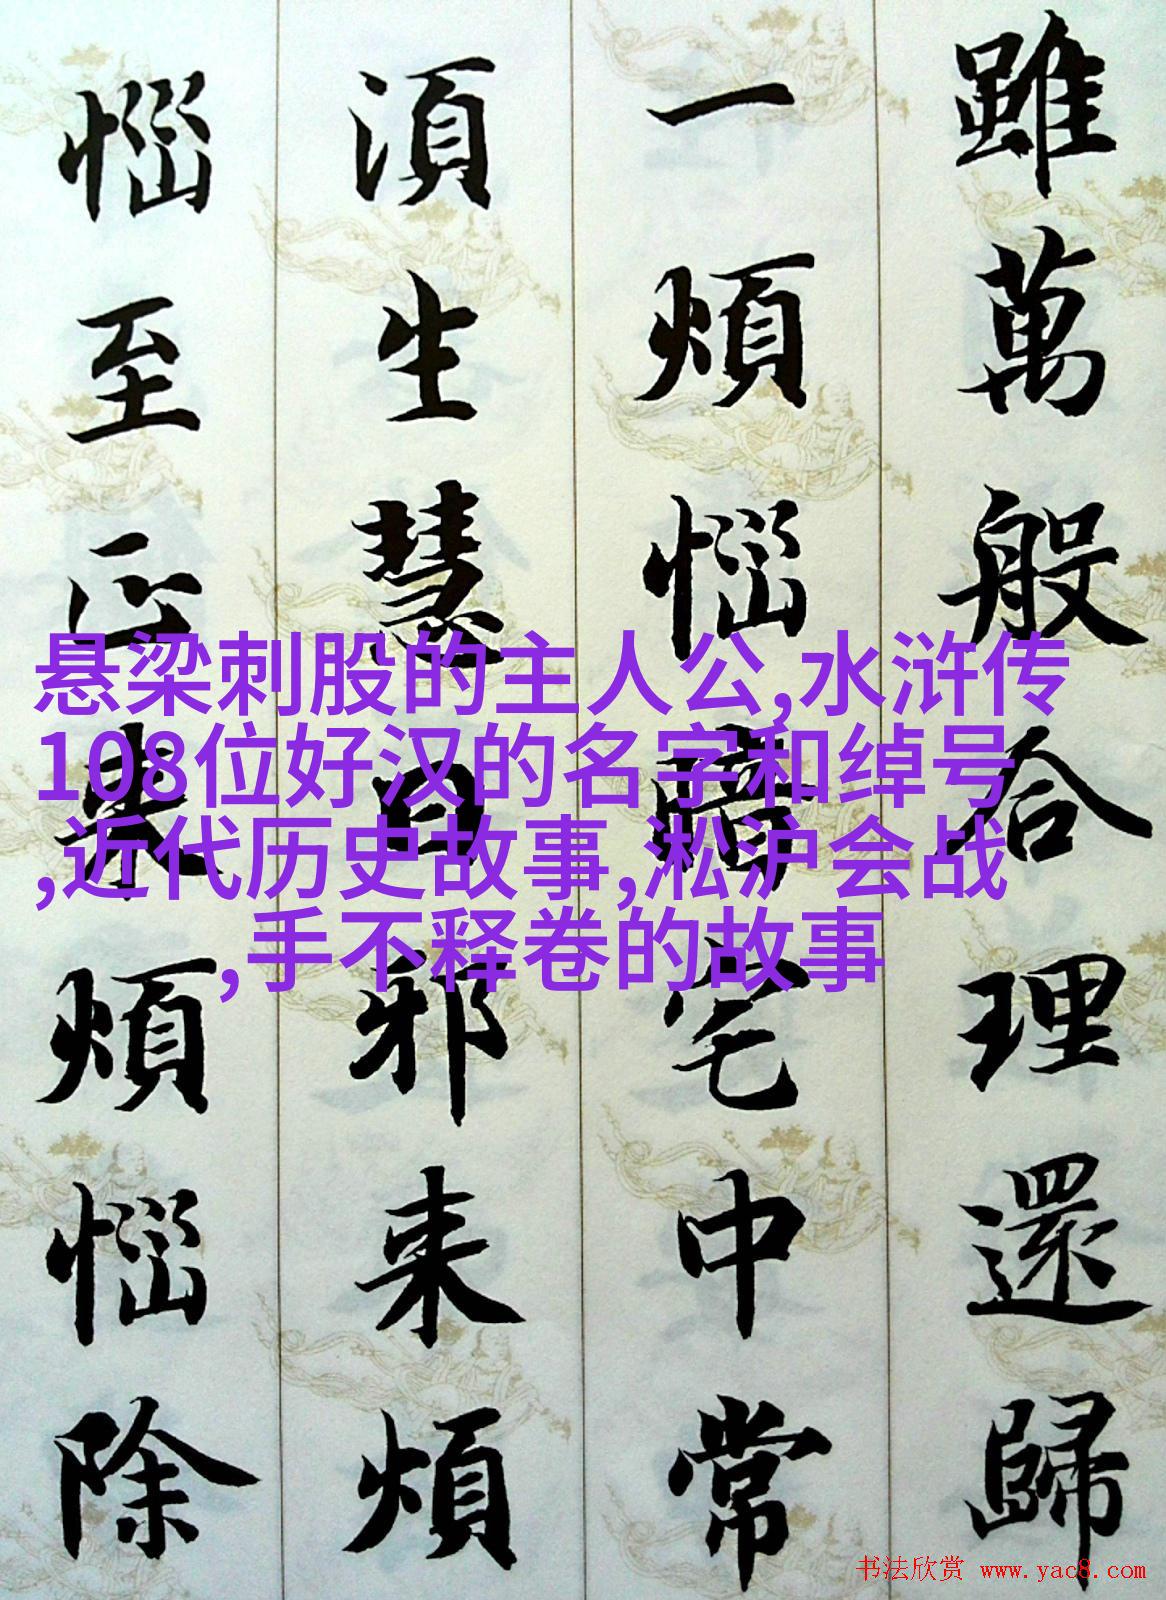 雖萬般合理還歸
一煩惱暗宅中常
湏生慧日邪来煩
惱至正来煩惱除
悬梁刺股的主人公,水浒传
108位好汉的名字和绰号
,近代历史故事,淞沪会战
,手不释卷的故事
书法欣赏 www.yac8.com